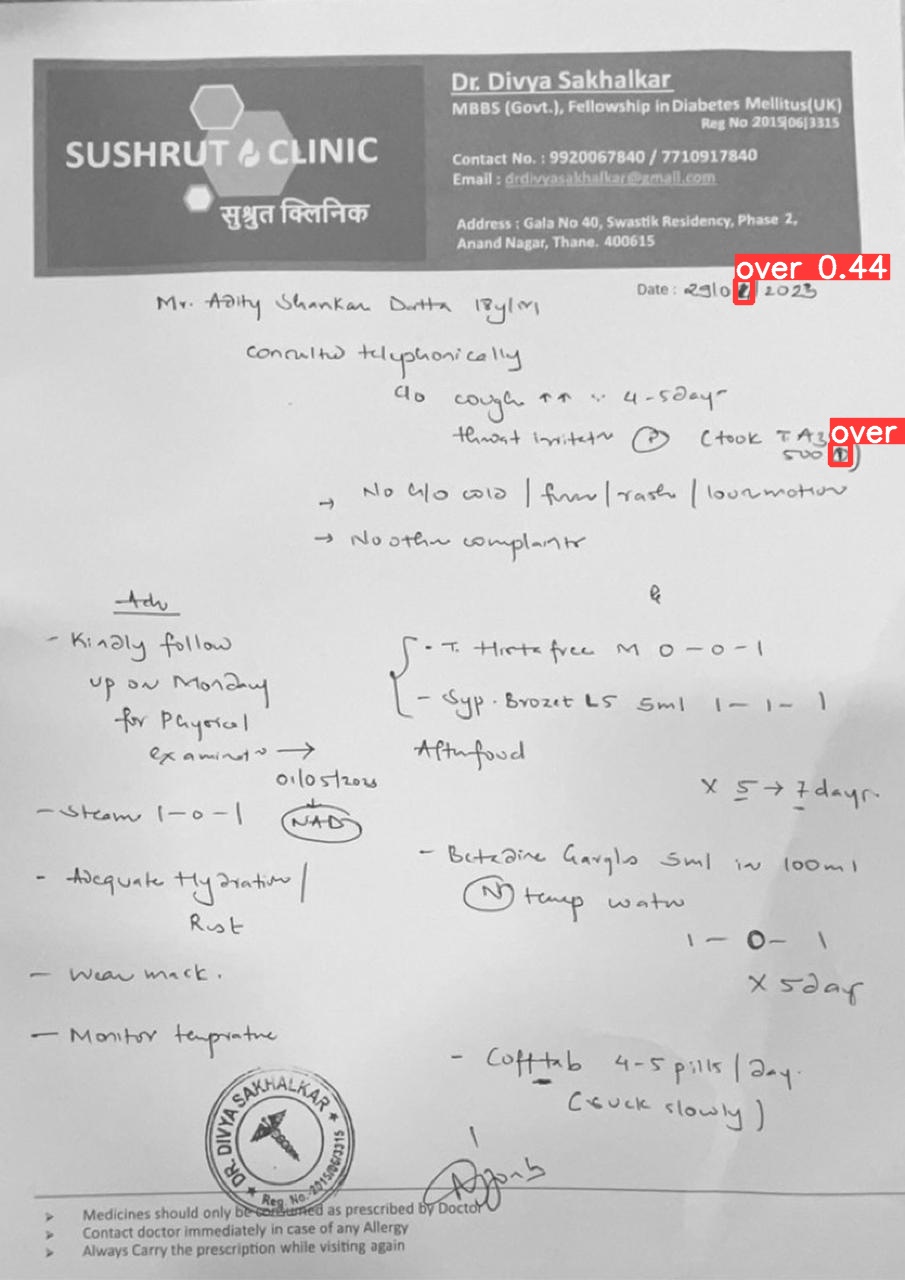 SUSHRUT CLINIC
सुश्रुत क्लिनिक
Dr. Divya Sakhalkar
MBBS (Govt.), Fellowship in Diabetes Mellitus(UK)
Reg No 2015|06|3315
Contact No. : 9920067840 / 7710917840
Email : drdivyasakhalkar@gmail.com
Address : Gala No 40, Swastik Residency, Phase 2,
Anand Nagar, Thane. 400615
over 0.44
Date : 29/0 / 2023
Mr. Adity Shankar Dutta 18y/M
consulted telephonically
c/o cough ↑↑ 4-5 day
over
throat irritatn (P) (took T
500
→ No H/o cold / fever / rash / loosemotion
→ No other complaints
Adv
- Kindly follow
up on Monday
for Physical
examinatn →
01/05/2023
NAD
- Steam 1-0-1
- Adequate Hydration /
Rest
- Wear mask.
- Monitor temprature
- T. Histafree M 0-0-1
- Syp. Brozet LS 5ml 1-1-1
After food
x 5 → 7 days.
- Betadine Gargles 5ml in 100ml
(N) temp water
1-0-1
x 5 day
- Cofftab 4-5 pills / day.
(suck slowly)
DR. DIVYA SAKHALKAR
Reg. No.-2015/06/3315
➤ Medicines should only be consumed as prescribed by Doctor
➤ Contact doctor immediately in case of any Allergy
➤ Always Carry the prescription while visiting again